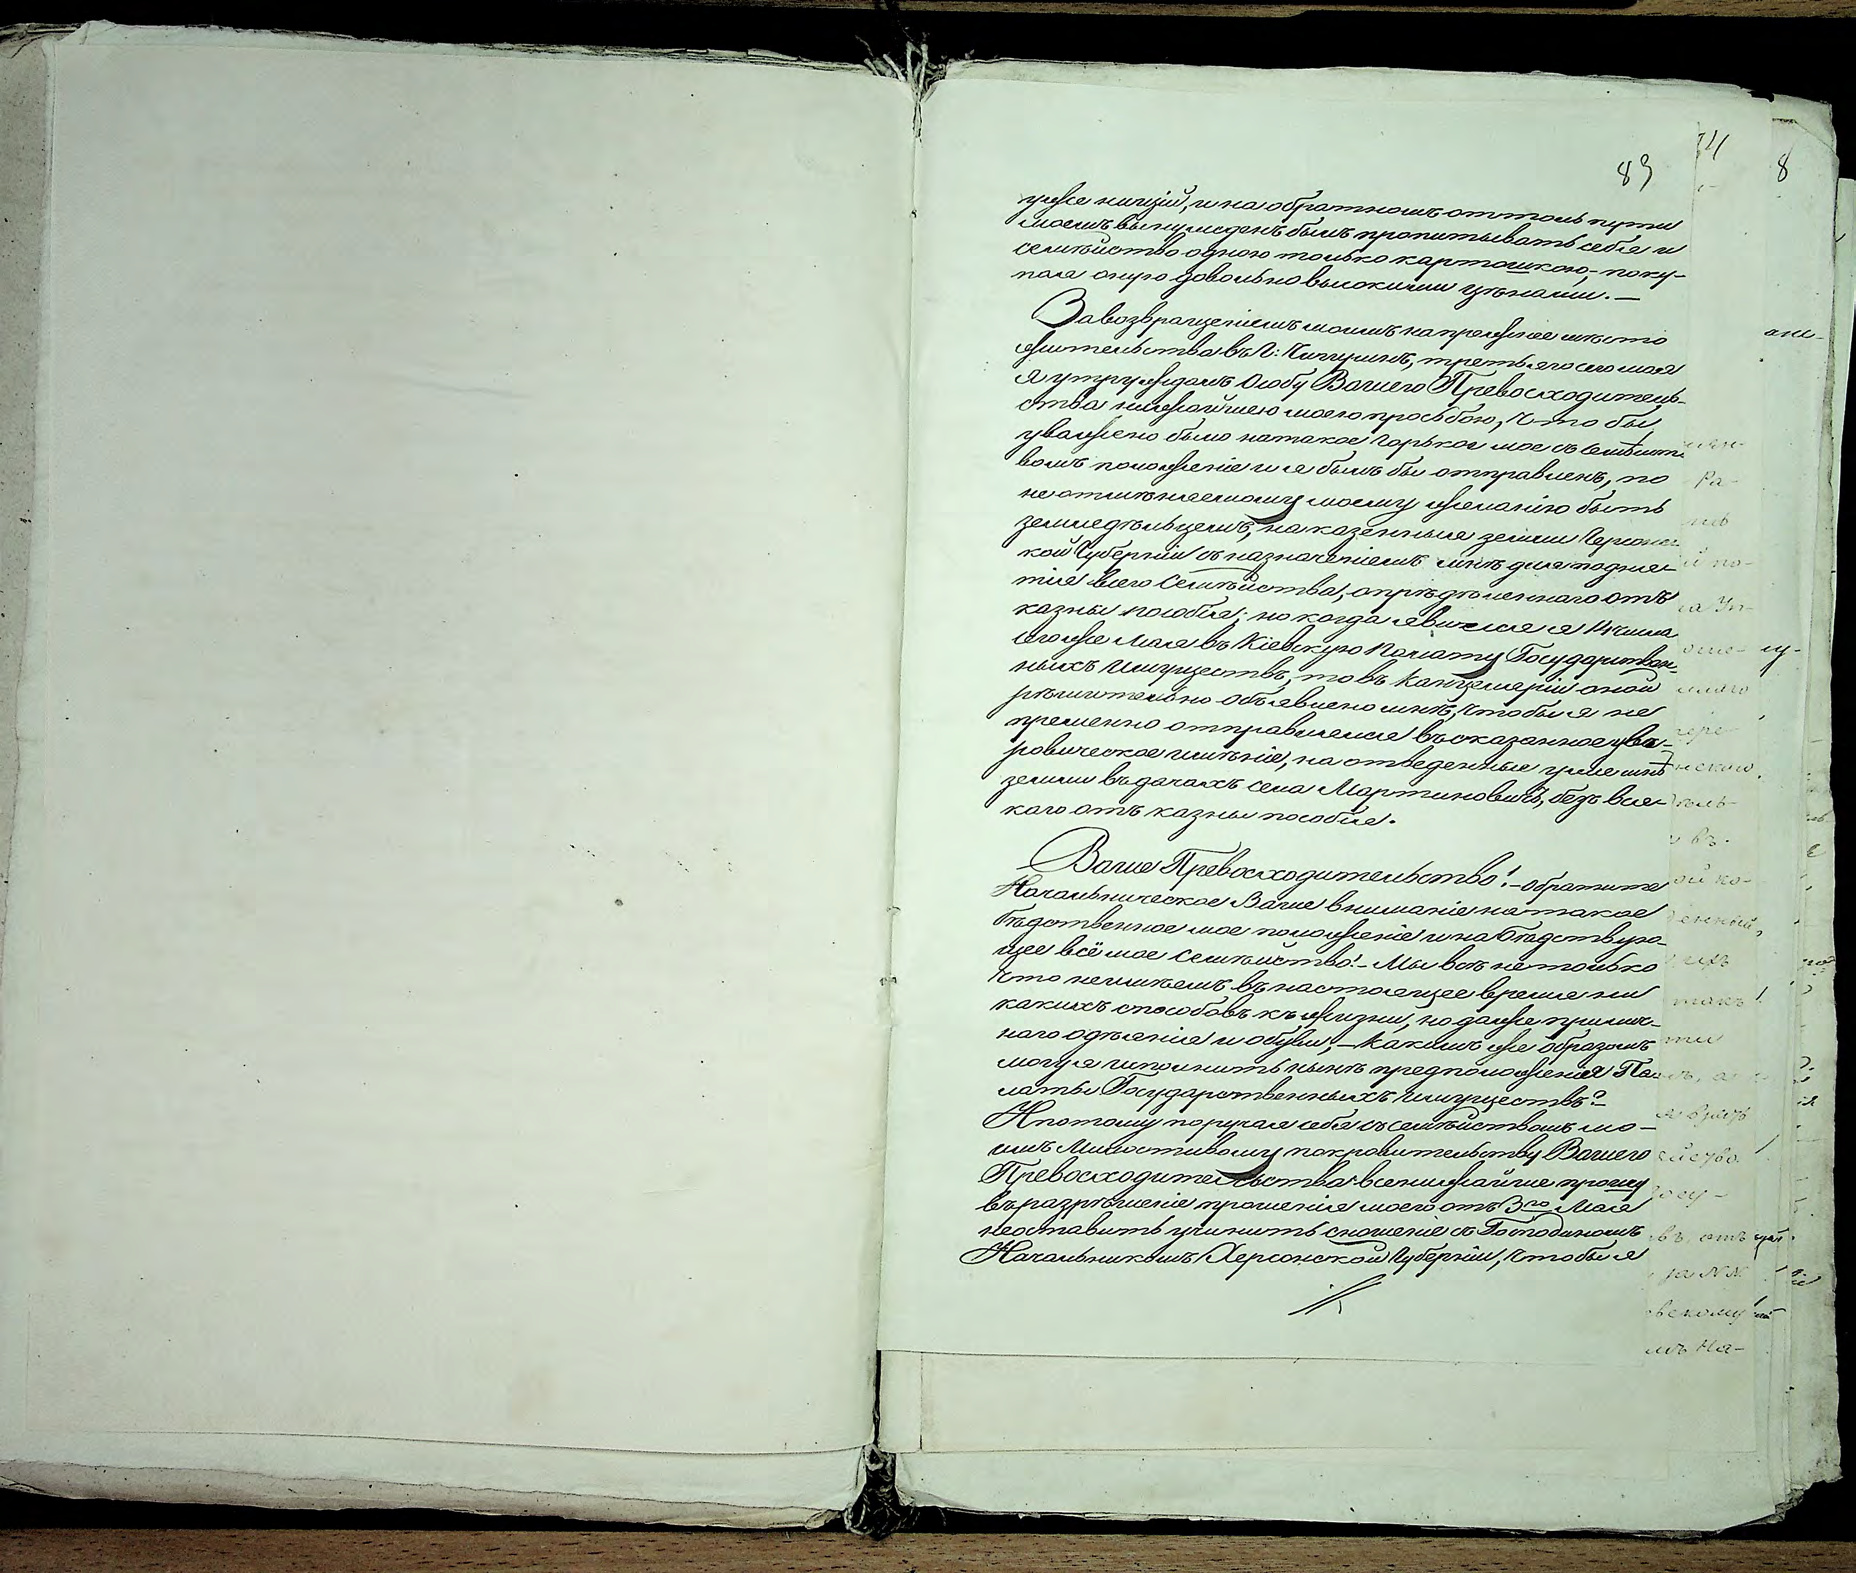 83
уже нищій, и на обратномъ оттоль пути
моемъ вынужденъ былъ пропитывать себя и
семѣйство одною только картошкою, поку-
пая оную довольно высокими цѣнами. —
За возвращеніемъ моимъ на прежнее мѣсто
жительства въ М: третьяго сего мая
я утруждалъ Особу Вашего Превосходитель-
ства нижайшею моею просьбою, что бы
уважено было на такое горькое мое съ семѣйст-
вомъ положеніе и я былъ бы отправленъ, по
неотмѣняемому моему желанію быть
земледѣльцемъ, на казенныя земли Херсонс-
кой Губерніи съ назначеніемъ мнѣ для подня-
тія всего Семѣйства, опрѣдѣленнаго отъ
казны пособія; но когда явился я 14 числа
сего же Мая въ Кіевскую Палату Государствен-
ныхъ Имуществъ, то въ Канцеляріи оной
рѣшительно объявлено мнѣ, чтобы я не
пременно отправлялся въ сказанное ува-
ровическое имѣніе, на отведенныя уже мнѣ
земли въ дачахъ села Мартиновичъ, безъ вся-
каго отъ казны пособія.
Ваше Превосходительство! — обратите
Начальническое Ваше вниманіе на такое
бѣдственное мое положеніе и на бѣдствую-
щее всё мое семѣйство! — Мы всѣ не только
что неимѣемъ въ настоящее время ни
какихъ способовъ къ жизни, но даже прилич-
наго одѣянія и обуви, — какимъ же образомъ
могу я исполнить нынѣ предположенія Па-
латы Государственныхъ Имуществъ? —
И потому поручая себя съ семѣйствомъ мо-
имъ Милостивому покровительству Вашего
Превосходительства всенижайше прошу
въ разрѣшеніе прошенія моего отъ 3го Мая
неоставить учинить сношеніе съ Господиномъ
Начальникомъ Херсонской Губерніи, чтобы я
74
8